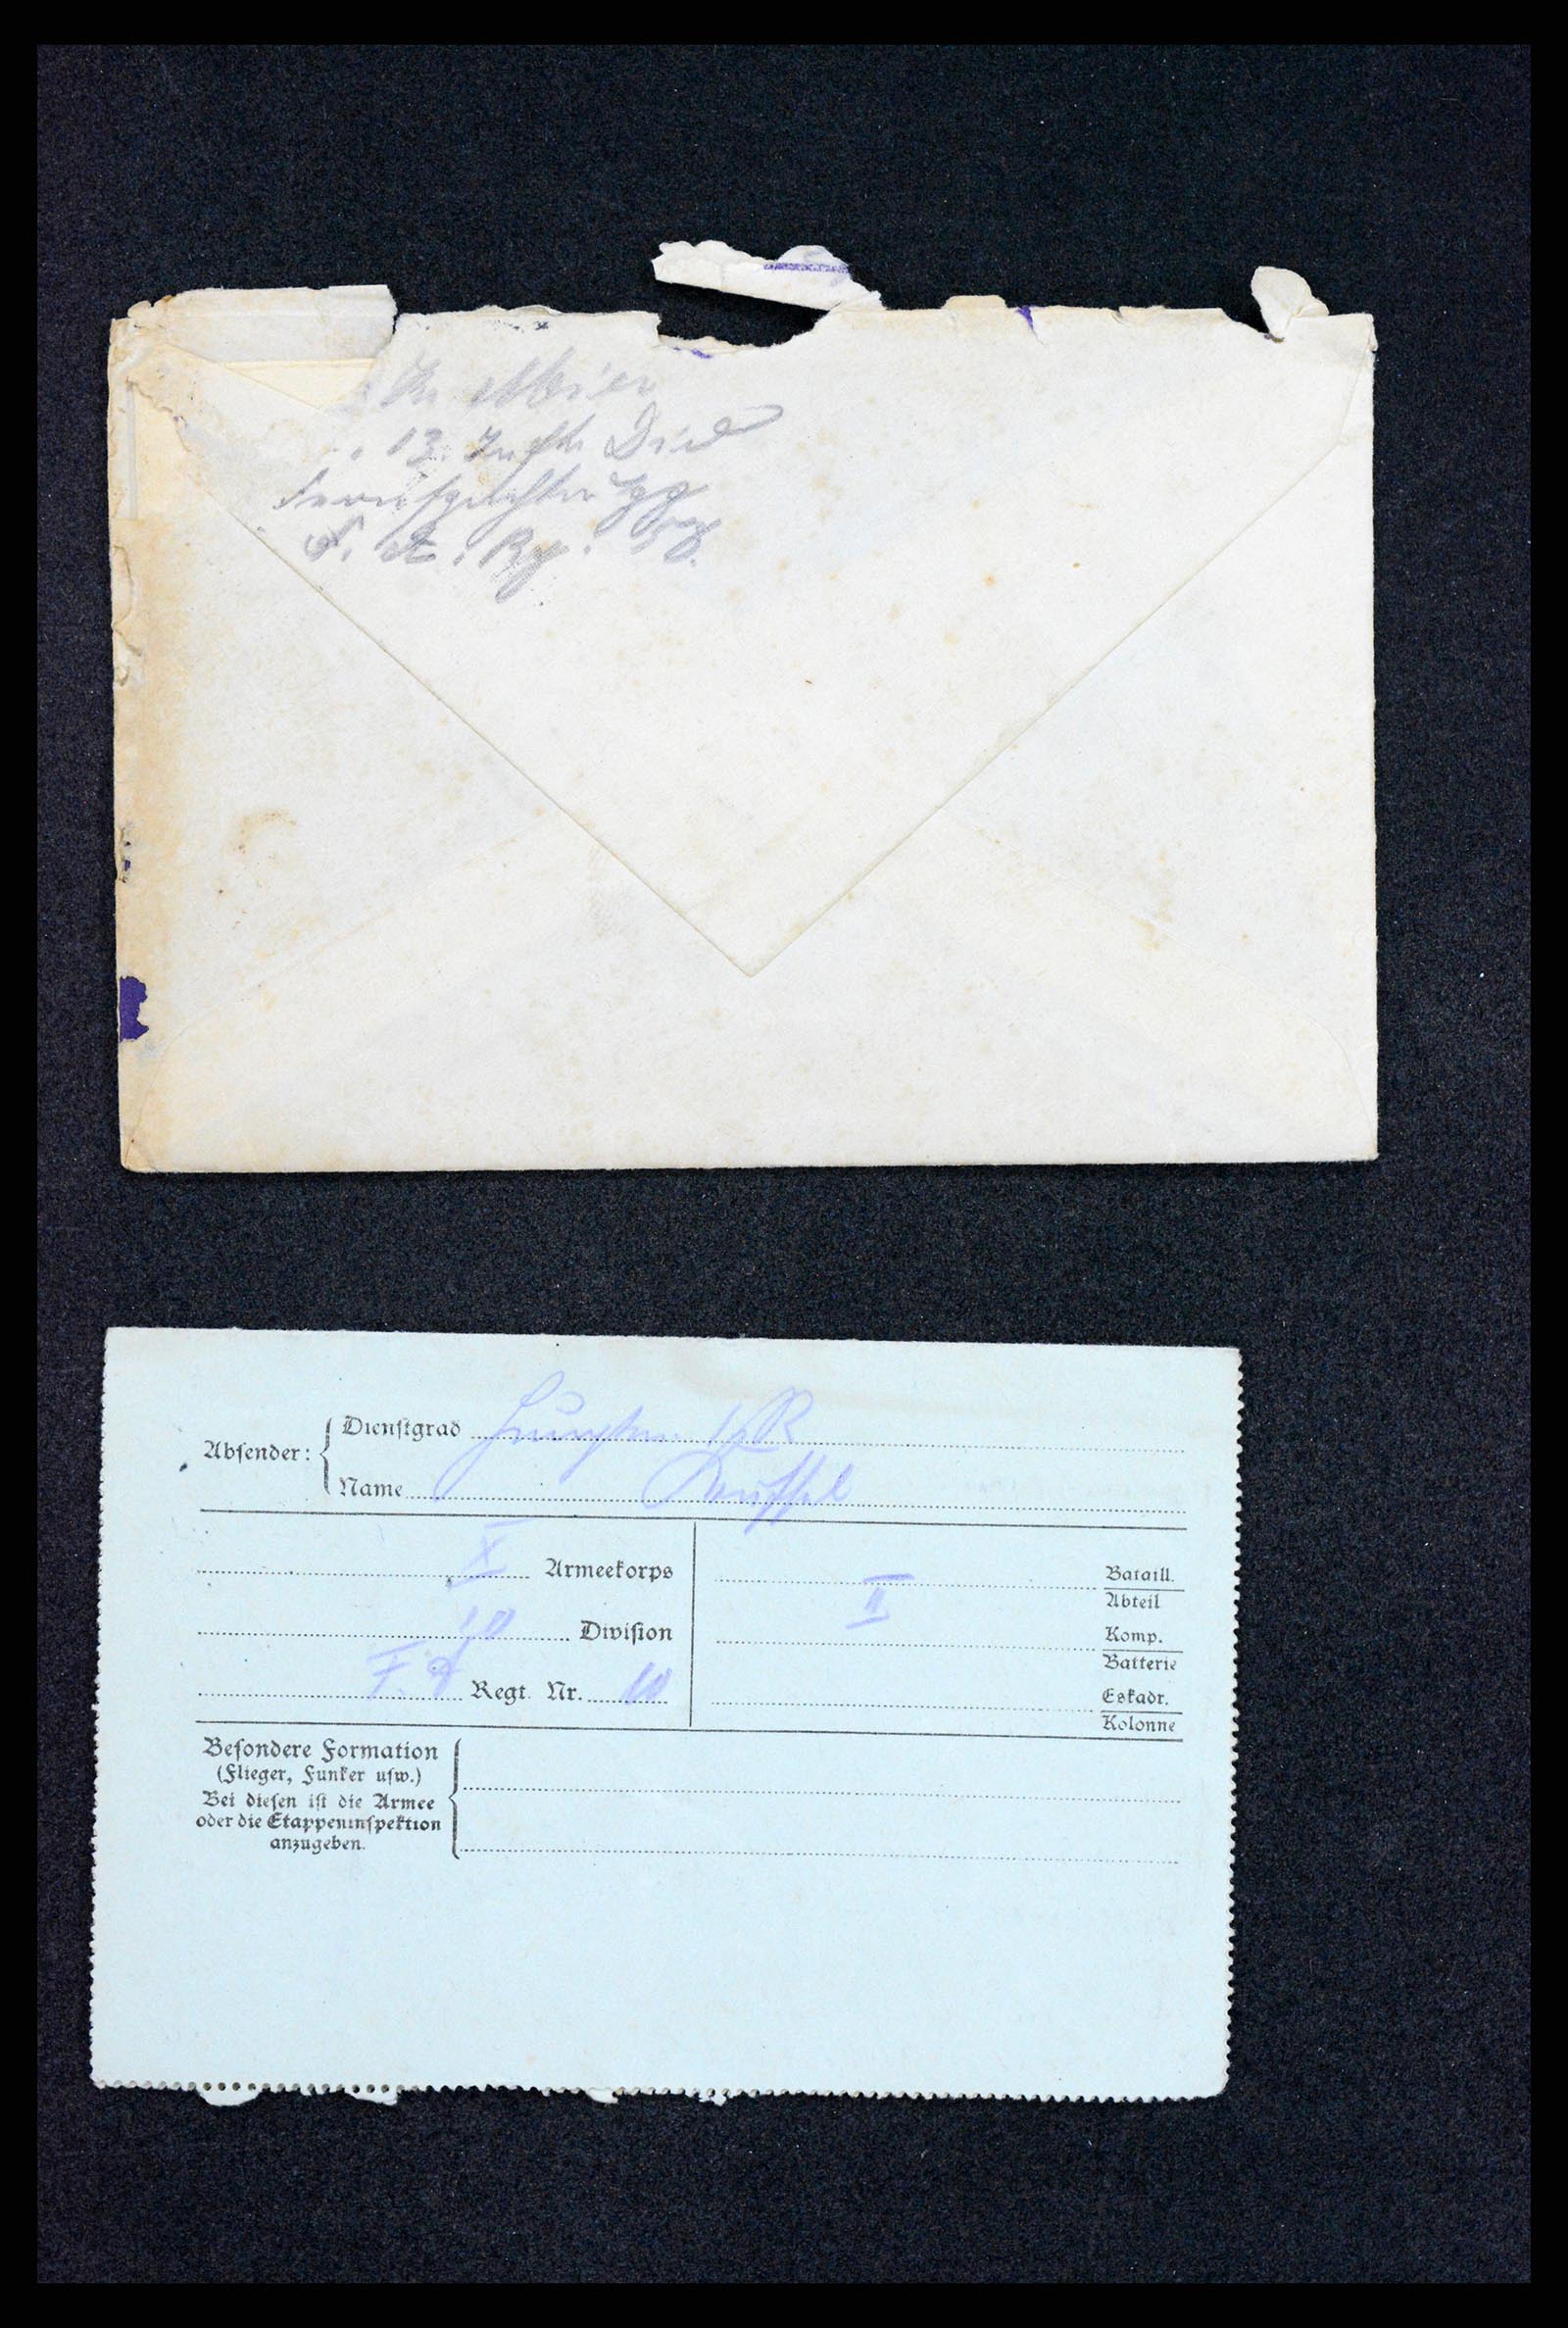 Meier
13. Inft. Div
F. A. Rg. 58.
Absender:
Dienstgrad
Name
X Armeekorps
Division
F. A Regt. Nr. 10
II
Bataill.
Abteil
Komp.
Batterie
Eskadr.
Kolonne
Besondere Formation
(Flieger, Funker usw.)
Bei diesen ist die Armee
oder die Etappeninspektion
anzugeben.